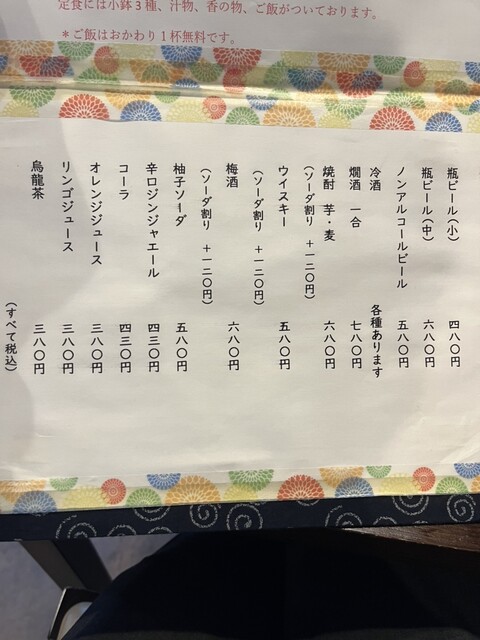 定食には小鉢3種、汁物、香の物、ご飯がついております。
＊ご飯はおかわり1杯無料です。
瓶ビール(小) 四八〇円
瓶ビール(中) 六八〇円
ノンアルコールビール 五八〇円
冷酒 各種あります
燗酒 一合 七八〇円
焼酎 芋・麦 六八〇円
(ソーダ割り +一二〇円)
ウイスキー 五八〇円
(ソーダ割り +一二〇円)
梅酒 六八〇円
(ソーダ割り +一二〇円)
柚子ソーダ 五八〇円
辛口ジンジャエール 四三〇円
コーラ 四三〇円
オレンジジュース 三八〇円
リンゴジュース 三八〇円
烏龍茶 三八〇円
(すべて税込)